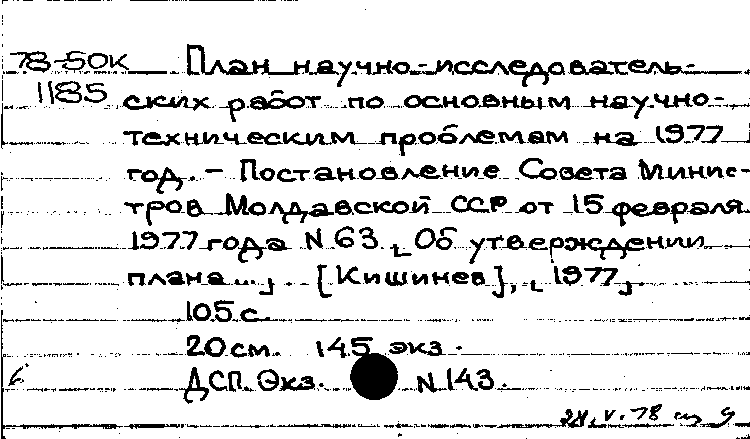 78-50к План научно-исследователь-
1185 ских работ по основным научно-
техническим проблемам на 1977
год. – Постановление Совета Минис-
тров Молдавской ССР от 15 февраля
1977 года N 63 ⌞Об утверждении
плана...⌟. [Кишинев], ⌞1977⌟.
105 с.
20 см. 145 экз.
6. ДСП. Экз. N 143.
24.V.78